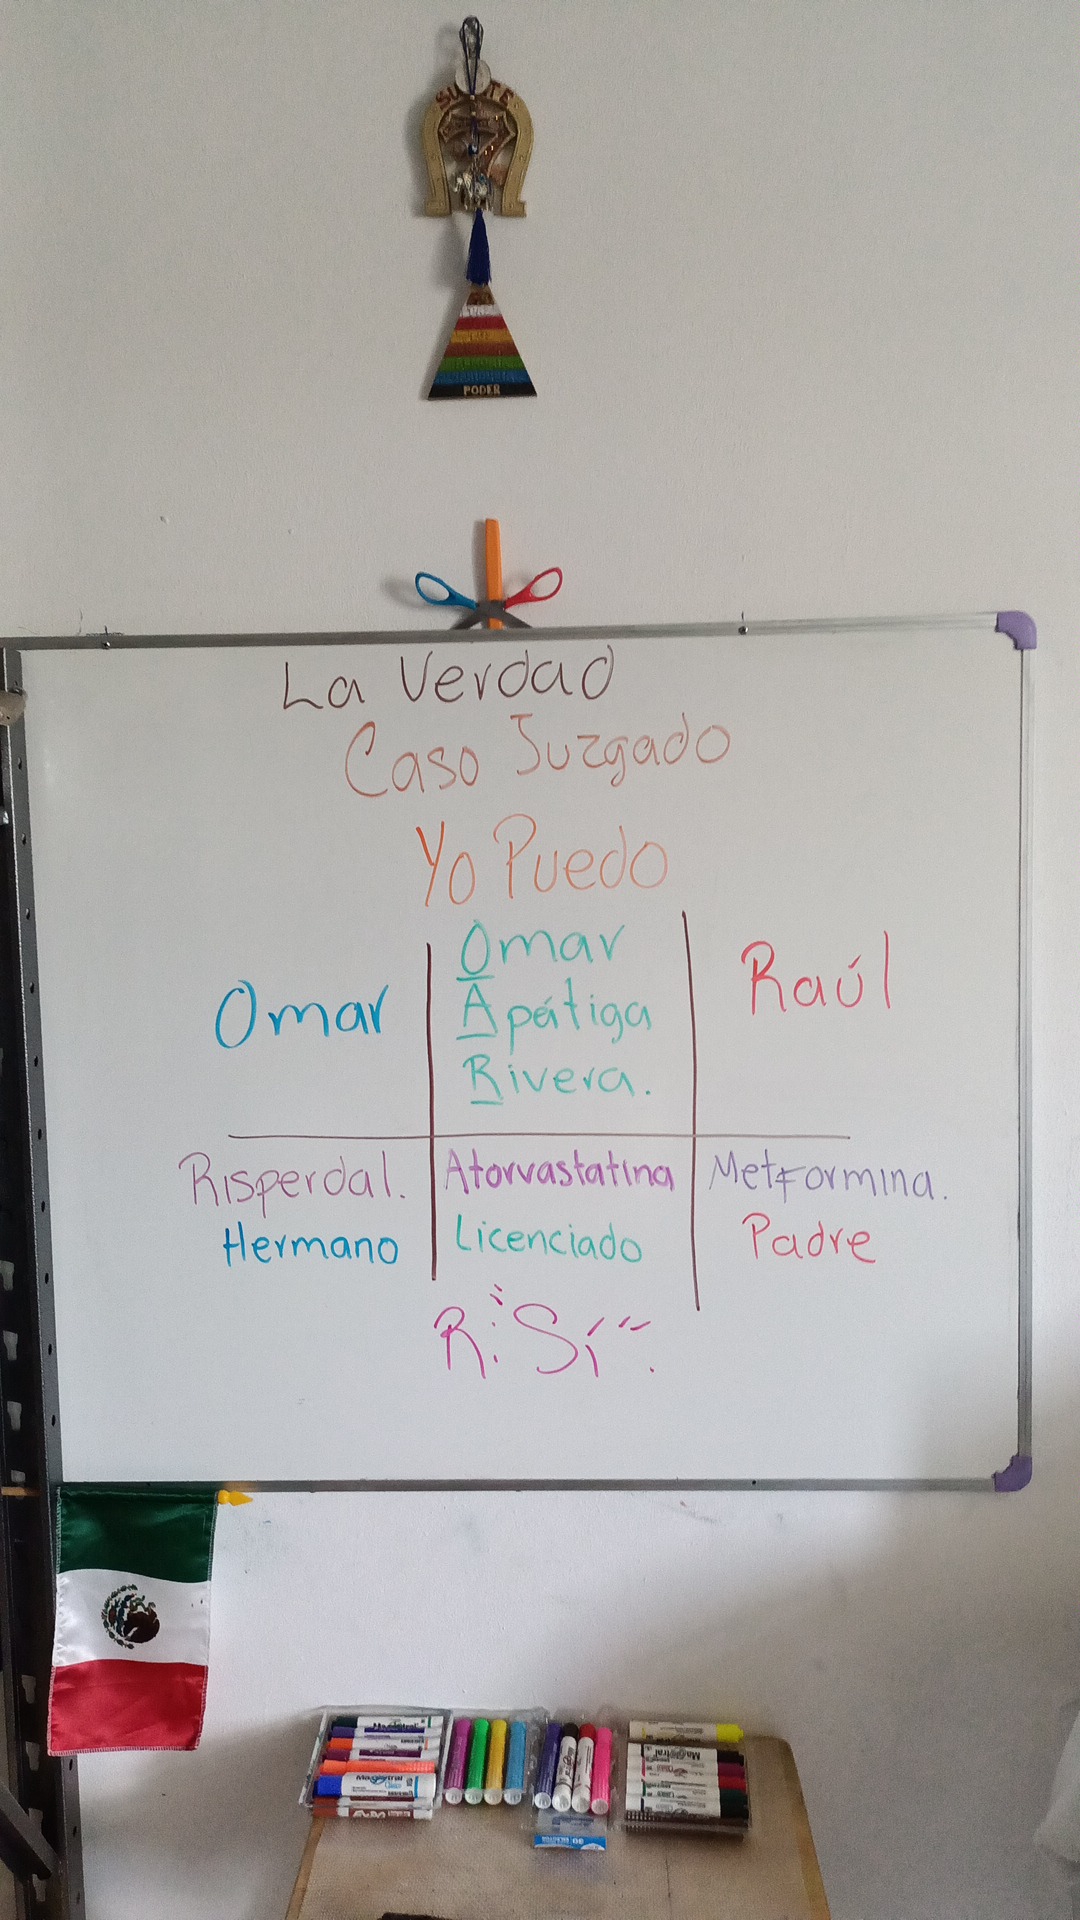 SUERTE
PODER
La Verdad
Caso Juzgado
Yo Puedo
Omar
Omar
Apátiga
Rivera.
Raúl
Risperdal. Atorvastatina Metformina.
Hermano Licenciado Padre
R: Sí.
Magistral
Magistral
Magistral